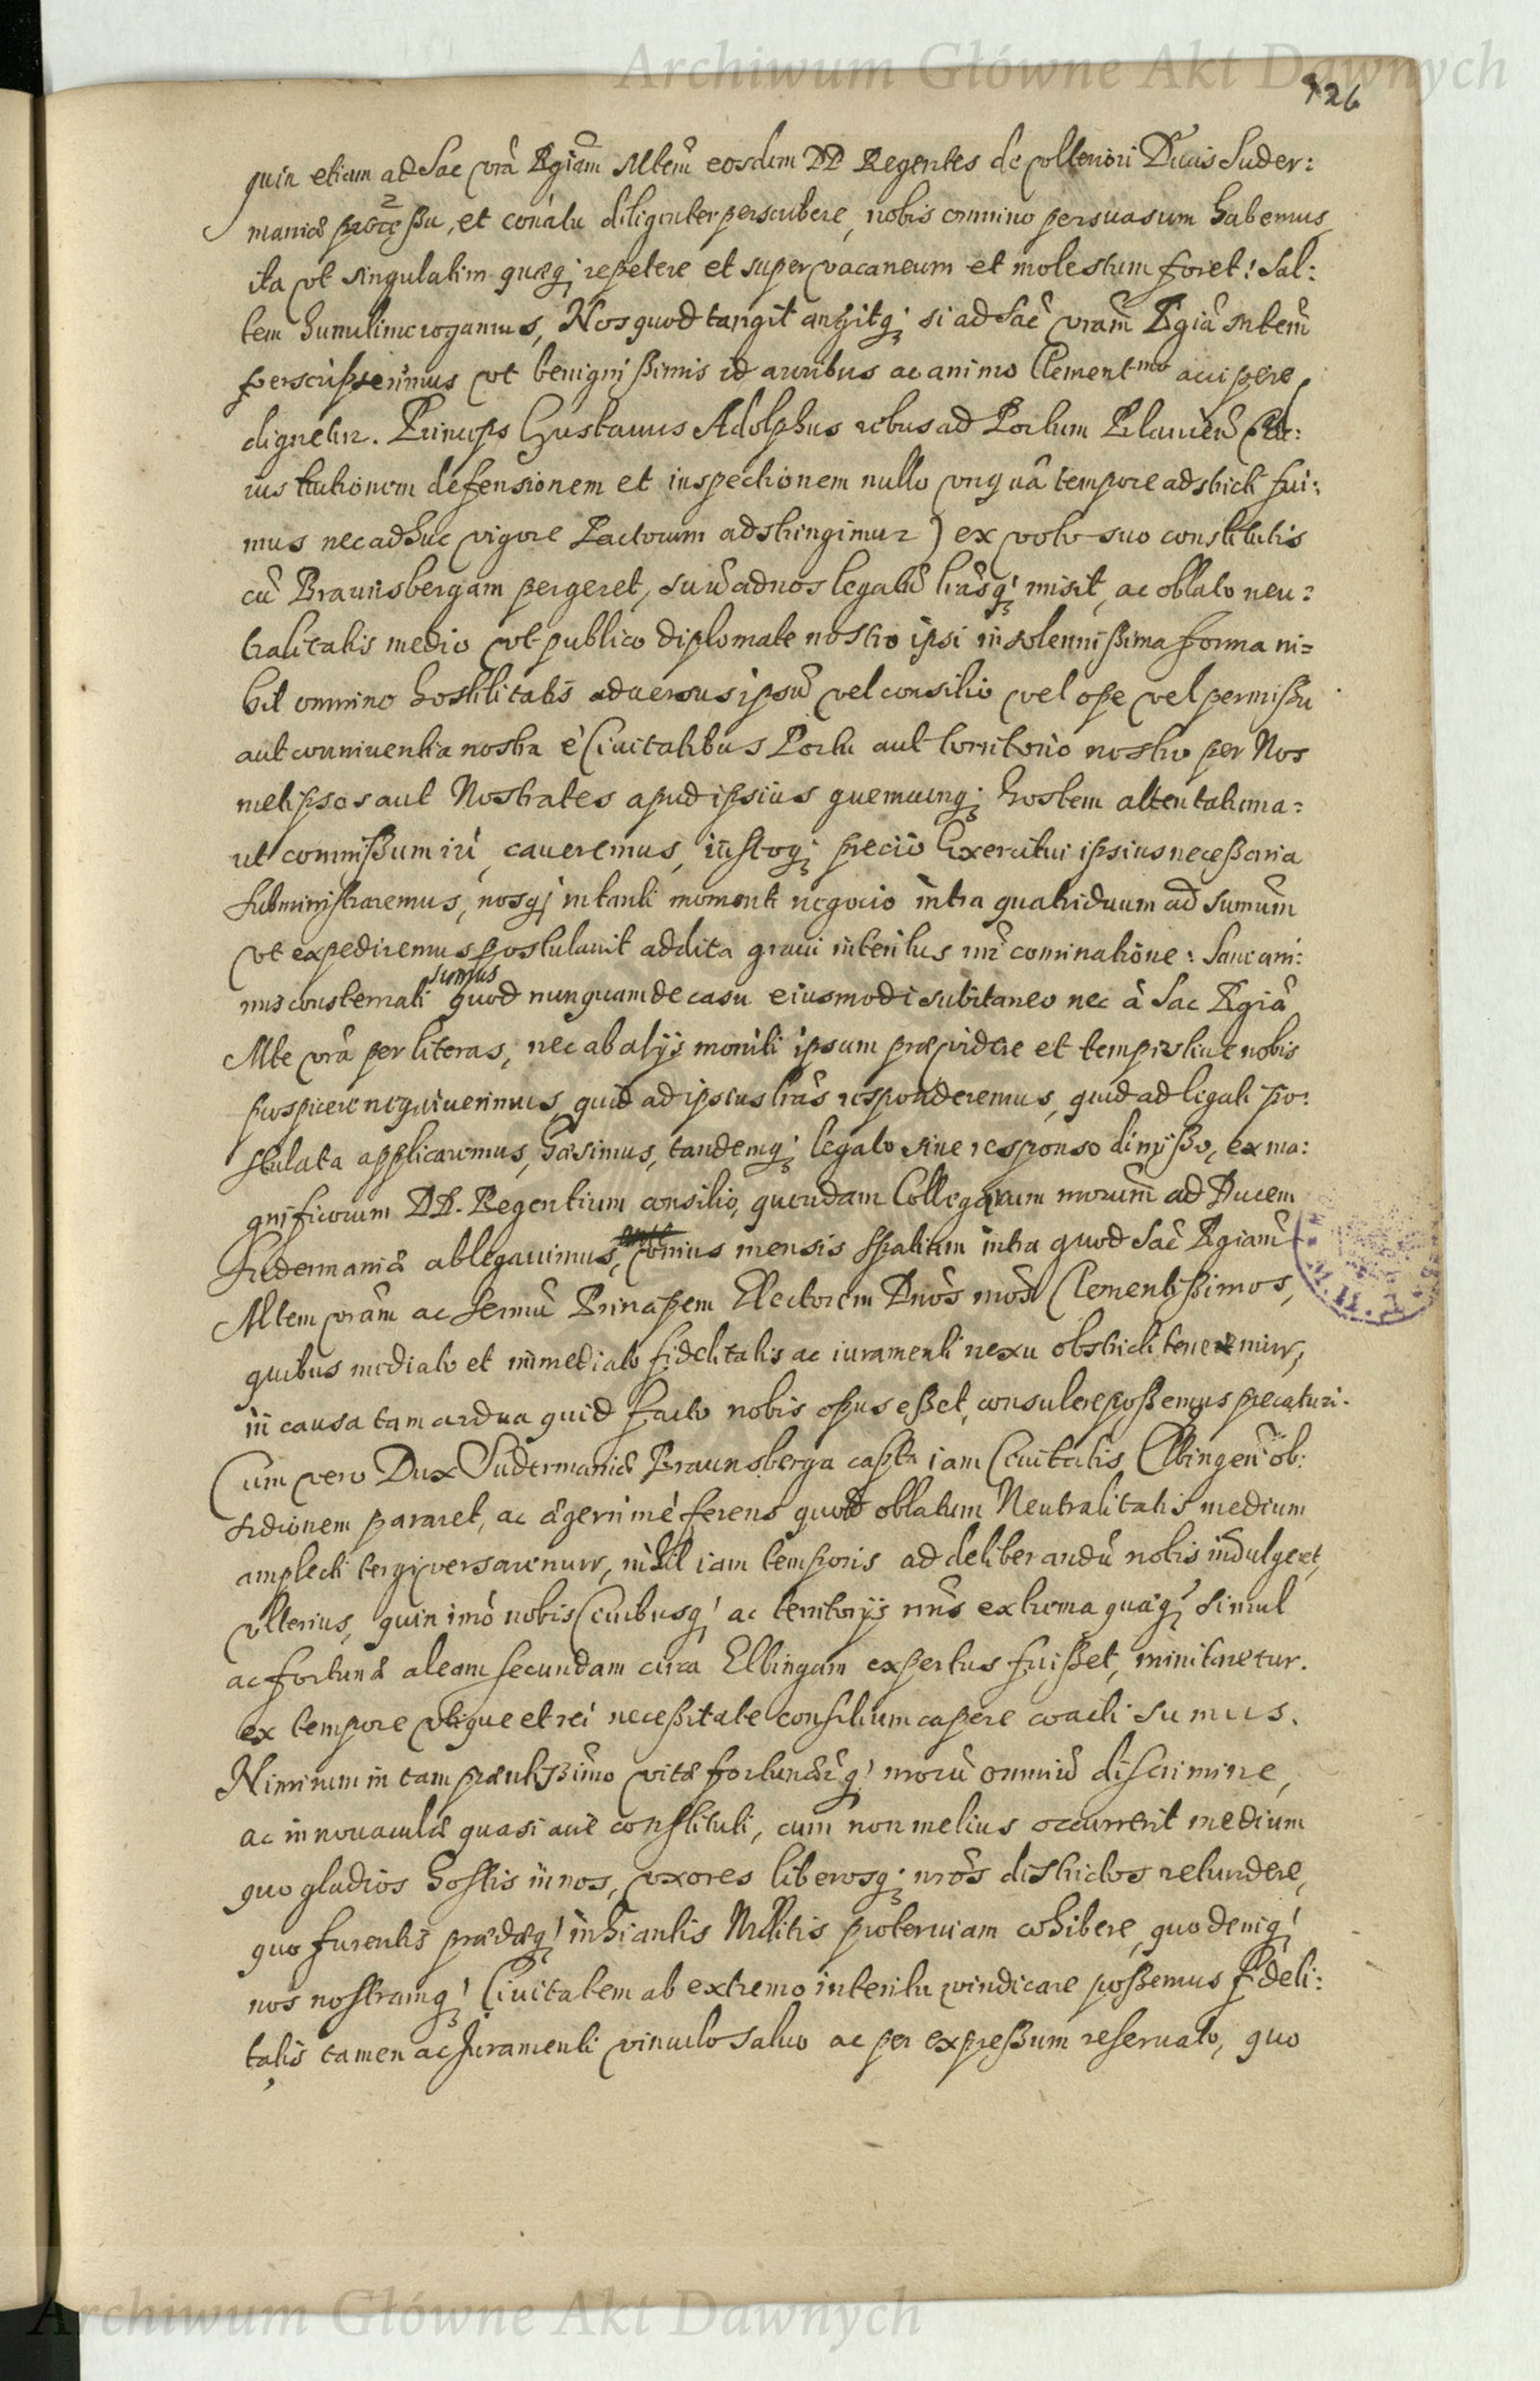 Archiwum Główne Akt Dawnych
126
quin etiam ad Sac vrã Rgiam Mtem eosdem DD Regentes de vlteriori Ducis Suder:
maniæ processu, et conatu diligenter perscribere, nobis omnino persuasum habemus,
ita vt singulatim quæq; repetere et supervacaneum et molestum foret: Sal:
tem humilime rogamus, Nos quod tangit angitq; si ad Sac̃ vram̃ Rgiã Mtem̃
perscripserimus vt benignissimis id auribus ac animo Clementmo accipere
dignetur. Princeps Gustauus Adolphus rebus ad Portum Pilauien̄
ius tuitionem defensionem et inspectionem nullo vnquã tempore adstricti fui:
mus nec adhuc vigore Pactorum adstringimur) ex voto suo constitutis
cũ Braunsbergam pergeret, suũ ad nos legatũ lrãsq; misit, ac oblato neu:
tralitatis medio vt publico diplomate nostro ipsi in solennissima forma ni=
hil omnino hostilitatis aduersus ipsũ vel consilio vel ope vel permissu
aut conniuentia nostra è Ciuitatibus Portu aut territorio nostro per Nos
metipsos aut Nostrates apud ipsius quemcunq; hostem attentatum a=
ut commissum iri, caueremus, iustoq; precio Exercitui ipsius necessaria
subministraremus, nosq; in tanti momenti negocio intra quatriduum ad sumum̃
vt expediremus postulauit addita graui interitus nr̃i cominatione: Sane ani:
mis consternati sumus quod nunquam de casu eiusmodi subitaneo nec à Sac Rgiã
Mte vrã per literas, nec ab alijs moniti ipsum prævidere et tempestiue nobis
prospicere nequiuerimus, quid ad ipsius lrãs responderemus, quid ad legati po:
stulata applicaremus, hæsimus, tandemq; legato sine responso dimisso, ex ma:
gnificorum DD. Regentium consilio, quendam Collegarum nrorum̃ ad Ducem
Sudermaniæ ablegauimus, vnius mensis spatium intra quod Sac̃ Rgiam̃
Mtem vrãm ac Sermũ Principem Electorem Dnõs nrõs Clementissimos,
quibus mediato et immediato fidelitatis ac iuramenti nexu obstricti teneremur,
in causa tam ardua quid facto nobis opus esset, consulere possemus precaturi.
Cum vero Dux Sudermaniæ Braunsberga capta iam Ciuitatis Elbingen̄ ob:
sidionem pararet, ac ægerrimè ferens quod oblatum Neutralitatis medium
amplecti tergiversaremur, nihil iam temporis ad deliberandũ nobis indulgeret,
vlterius, quin imò nobis Ciuibusq; ac territorijs nrĩs extrema quæq; simul
ac fortunæ aleam secundam circa Elbingam expertus fuisset, minitaretur.
ex tempore vtique et rei necessitate consilium capere coacti sumus.
Nimirum in tam præsentissimo vitæ fortunarũq; nrorũ omniũ discrimine,
ac in nouaculæ quasi acie constituti, cum non melius occurrerit medium
quo gladios hostis in nos, vxores liberosq; nrõs districtos retundere,
quo furentis prædæq; inhiantis Militis proteruiam cohibere, quo deniq;
nos nostramq; Ciuitatem ab extremo interitu vindicare possemus Fideli:
tatis tamen ac Juramenti vinculo saluo ac per expressum reseruato, quo
Archiwum Główne Akt Dawnych